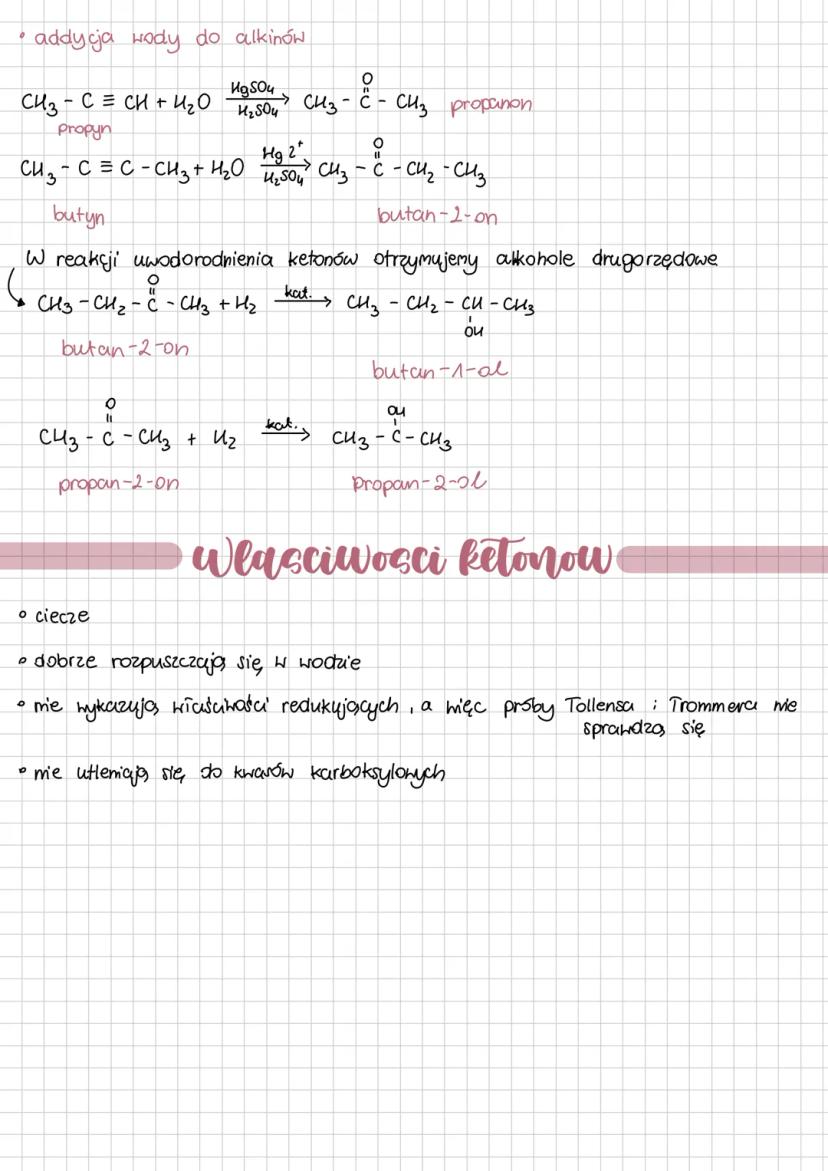 • addycja wody do alkinów
O
CH₃ - C ≡ CH + H₂O →(HgSO₄ / H₂SO₄) CH₃ - C - CH₃ propanon
propyn
O
CH₃ - C ≡ C - CH₃ + H₂O →(Hg 2⁺ / H₂SO₄) CH₃ - C - CH₂ - CH₃
butyn butan-2-on
W reakcji uwodorodnienia ketonów otrzymujemy alkohole drugorzędowe
O
CH₃ - CH₂ - C - CH₃ + H₂ →(kat.) CH₃ - CH₂ - CH - CH₃
OH
butan-2-on
butan-1-al
O OH
CH₃ - C - CH₃ + H₂ →(kat.) CH₃ - C - CH₃
propan-2-on propan-2-ol
właściwości ketonów
• ciecze
• dobrze rozpuszczają się w wodzie
• nie wykazują właściwości redukujących, a więc próby Tollensa i Trommera nie
sprawdzą się
• nie utleniają się do kwasów karboksylowych